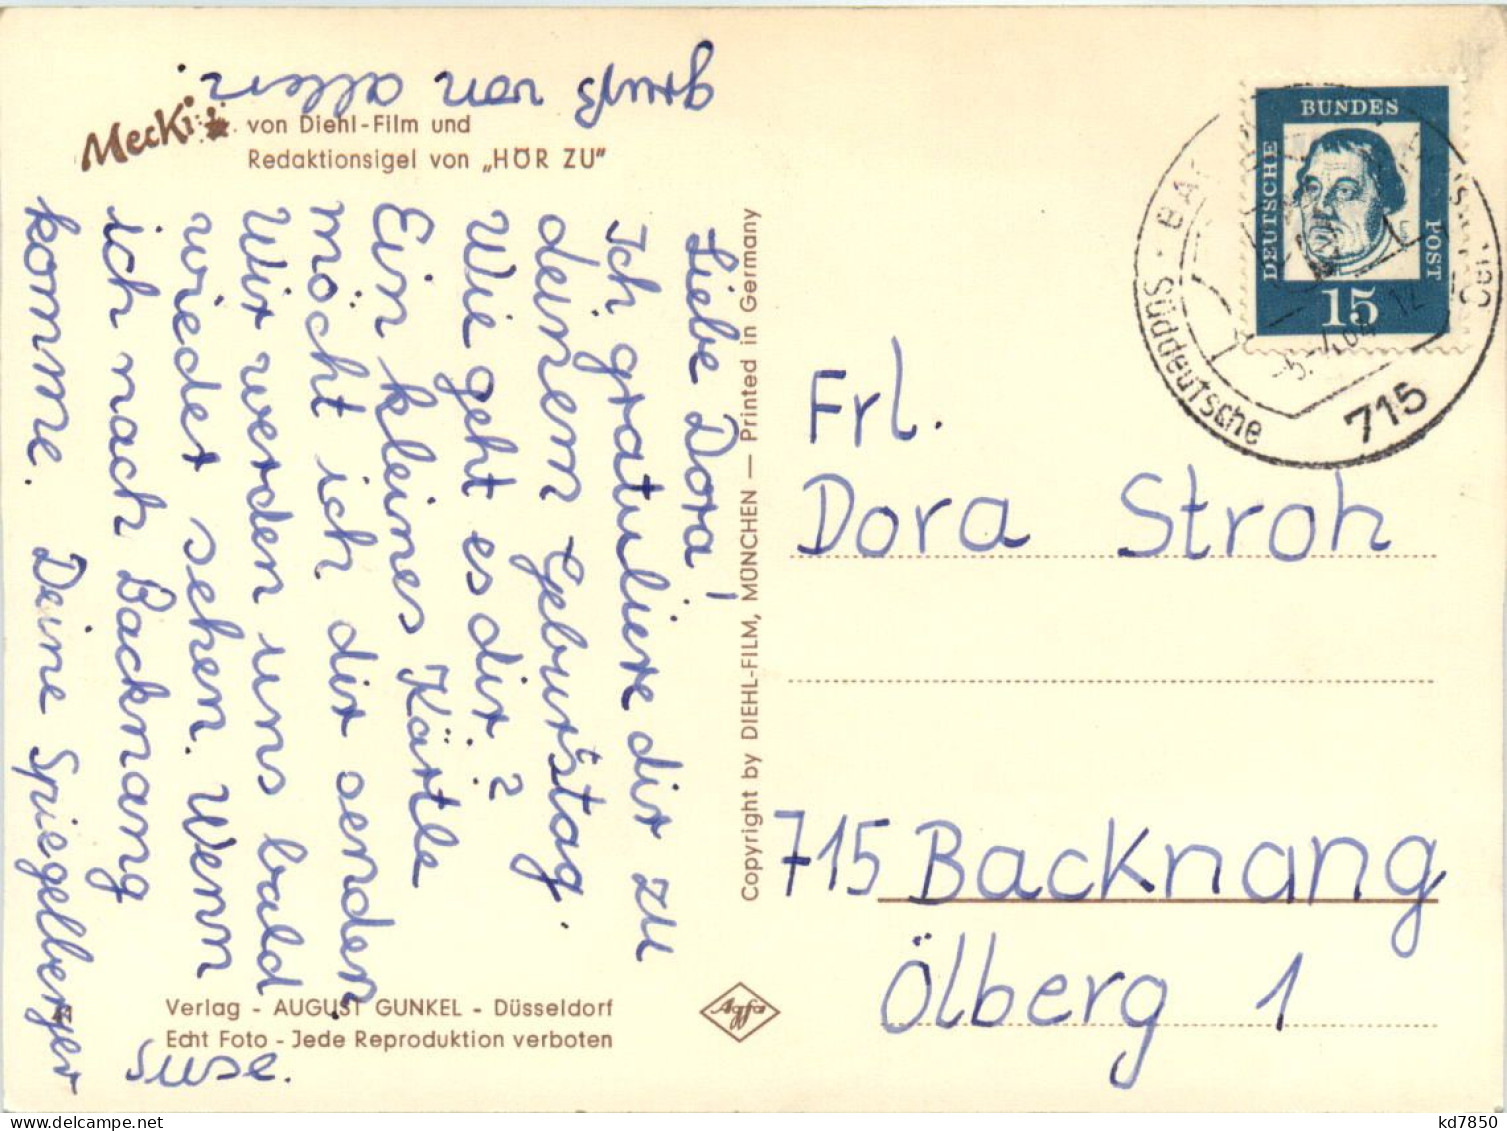 Mecki
von Diehl-Film und
Redaktionsigel von „HÖR ZU"
Liebe Dora!
Ich gratuliere dir zu
deinem Geburtstag.
Wie geht es dir?
Ein kleines Kärtle
möcht ich dir senden
Wir werden uns bald
wieder sehen. Wenn
ich nach Backnang
komme. Deine Spiegelberger
Suse.
gruß von allen
Copyright by DIEHL-FILM, MÜNCHEN — Printed in Germany
Verlag - AUGUST GUNKEL - Düsseldorf
Echt Foto - Jede Reproduktion verboten
Agfa
DEUTSCHE
BUNDES
POST
15
Süddeutsche
715
Frl.
Dora Stroh
715 Backnang
Ölberg 1
kd7850